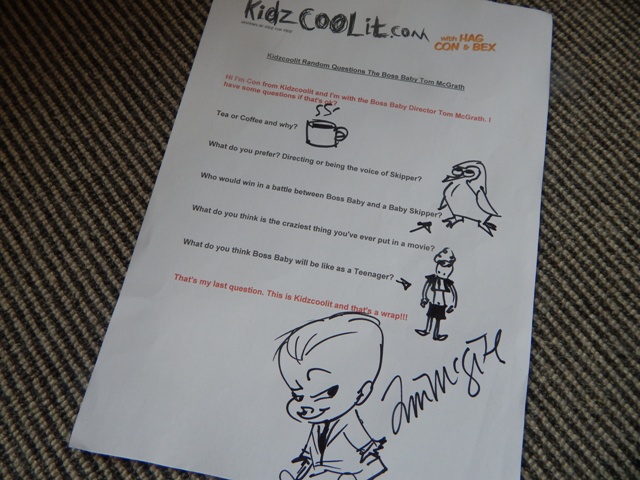 Kidz COOLit.com
with HAG
CON & BEX
Kidzcoolit Random Questions The Boss Baby Tom McGrath
Hi I'm Con from Kidzcoolit and I'm with the Boss Baby Director Tom McGrath. I
have some questions if that's ok?
Tea or Coffee and why?
What do you prefer? Directing or being the voice of Skipper?
Who would win in a battle between Boss Baby and a Baby Skipper?
What do you think is the craziest thing you've ever put in a movie?
What do you think Boss Baby will be like as a Teenager?
That's my last question. This is Kidzcoolit and that's a wrap!!!
Tom McGrath